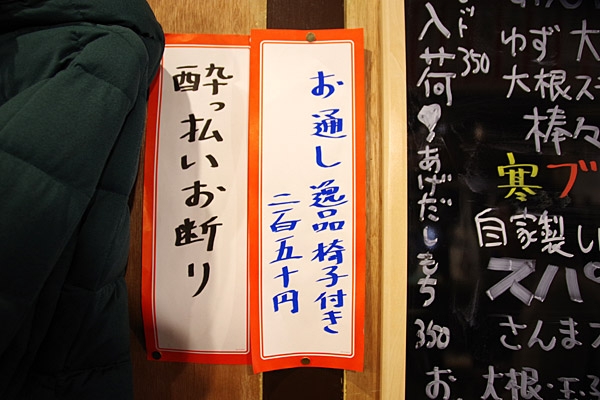 酔っ払いお断り
お通し 逸品椅子付き
二百五十円
入荷
350
♡あげだしもち
350
ゆず 大
大根ス
棒々
寒ブ
自家製し
スパ
さんま
お
大根・玉子